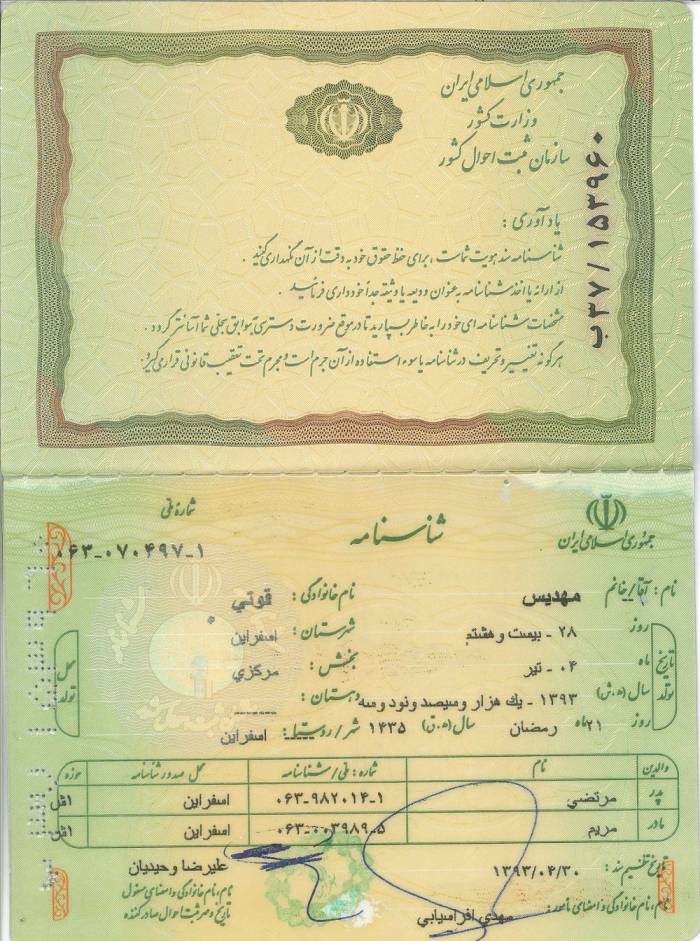 جمهوری اسلامی ایران
وزارت کشور
سازمان ثبت احوال کشور
ب۳۷/۱۵۳۹۶۰
یادآوری :
شناسنامه سند هویت شماست ، برای حفظ حقوق خود به دقت از آن نگهداری کنید .
از ارائه یا اخذ شناسنامه به عنوان ودیعه یا وثیقه جداً خودداری فرمائید .
مشخصات شناسنامه ای خود را به خاطر بسپارید تا در موقع ضرورت دسترسی به سوابق سجلی شما آسانتر گردد .
هرگونه تغییر و تحریف در شناسنامه یا سوء استفاده از آن جرم است و مجرم تحت تعقیب قانونی قرار می گیرد .
جمهوری اسلامی ایران
شناسنامه
شماره ملی
۰۶۳-۰۷۰۴۹۷-۱
نام : آقا/خانم مهدیس نام خانوادگی : قوتي
تاریخ تولد روز ۲۸ - بیست و هشتم شهرستان : اسفراین محل تولد
ماه ۰۴ - تیر بخش : مرکزي
سال (ه.ش) ۱۳۹۳ - یك هزار وسیصد ونود وسه دهستان : -----
روز ۲۱ ماه رمضان سال (ه.ق) ۱۴۳۵ شهر/روستا : اسفراین
والدین نام شماره : ملی / شناسنامه محل صدور شناسنامه حوزه
پدر مرتضي ۰۶۳-۹۸۲۰۱۴-۱ اسفراین ۱اش
مادر مریم ۰۶۳-۰۰۳۹۸۹-۵ اسفراین ۱اش
تاریخ تنظیم سند : ۱۳۹۳/۰۴/۳۰ علیرضا وحیدیان
نام، نام خانوادگی و امضای مأمور : مهدي افراسیابي
نام، نام خانوادگی و امضای مسئول
تاریخ و مهر ثبت احوال صادرکننده